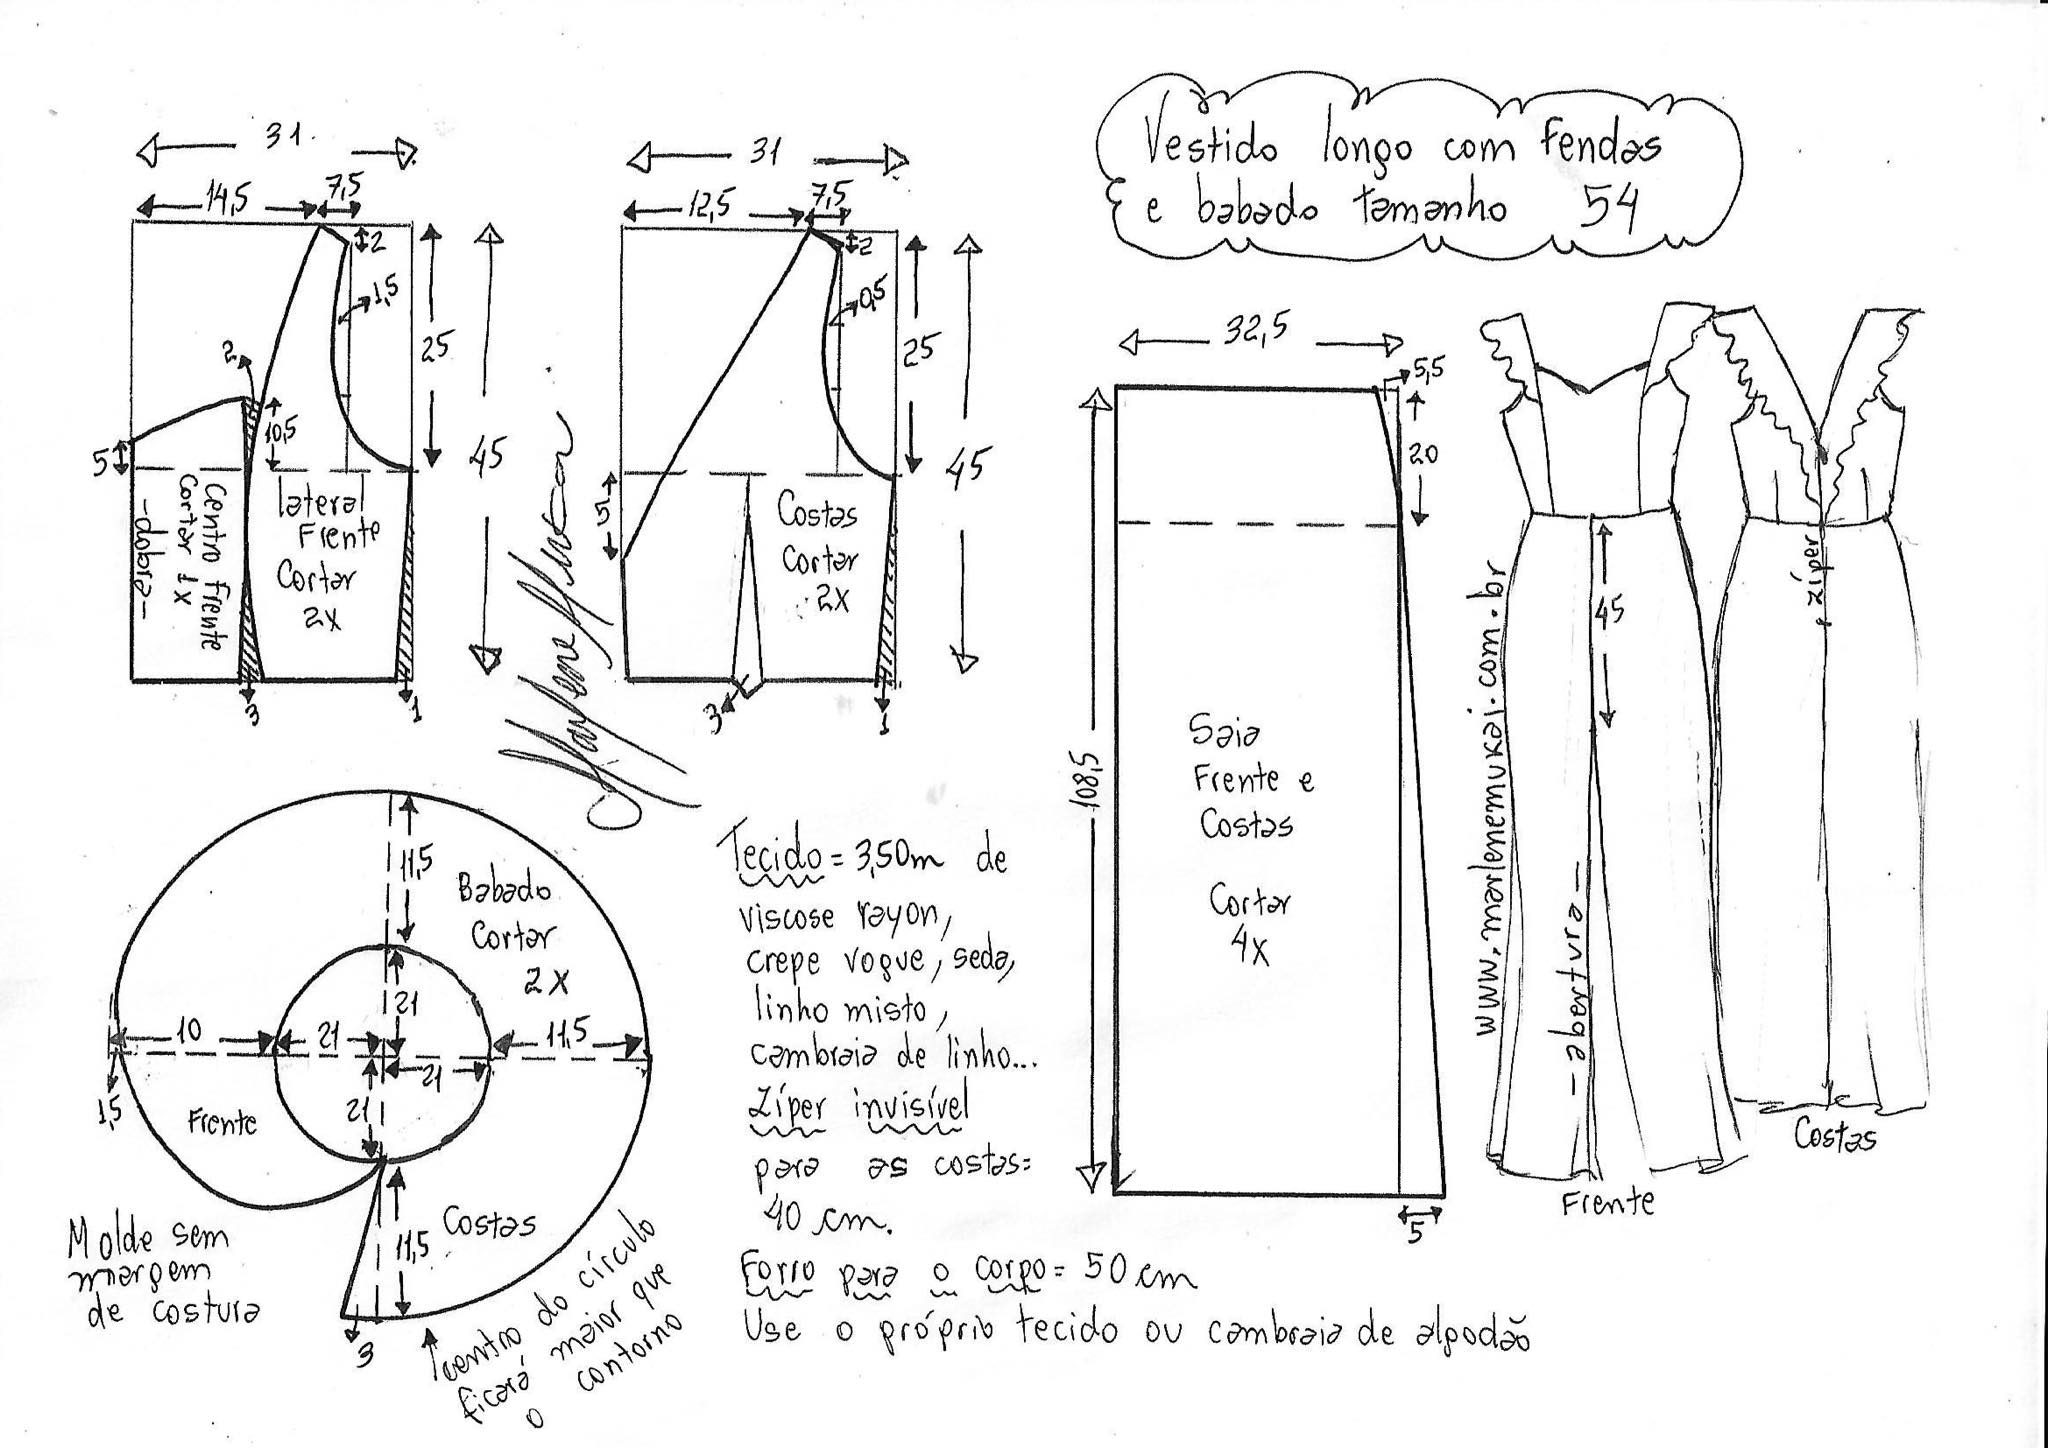 Vestido longo com fendas
e babado tamanho 54
31
14,5
7,5
2
1,5
25
45
2
10,5
5
Centro frente
Cortar 1x
-dobra-
lateral
Frente
Cortar
2x
3
1
31
12,5
7,5
2
0,5
25
45
5
Costas
Cortar
2x
3
1
32,5
5,5
20
108,5
Saia
Frente e
Costas
Cortar
4x
5
www.marlenemukai.com.br
45
-abertura-
Frente
zíper
Costas
11,5
Babado
Cortar
2x
21
10
21
11,5
21
21
1,5
Frente
Costas
11,5
3
centro do círculo
ficará maior que
o contorno
Molde sem
margem
de costura
Tecido = 3,50m de
viscose rayon,
crepe vogue, seda,
linho misto,
cambraia de linho...
Zíper invisível
para as costas=
40 cm.
Forro para o corpo= 50 cm
Use o próprio tecido ou cambraia de algodão